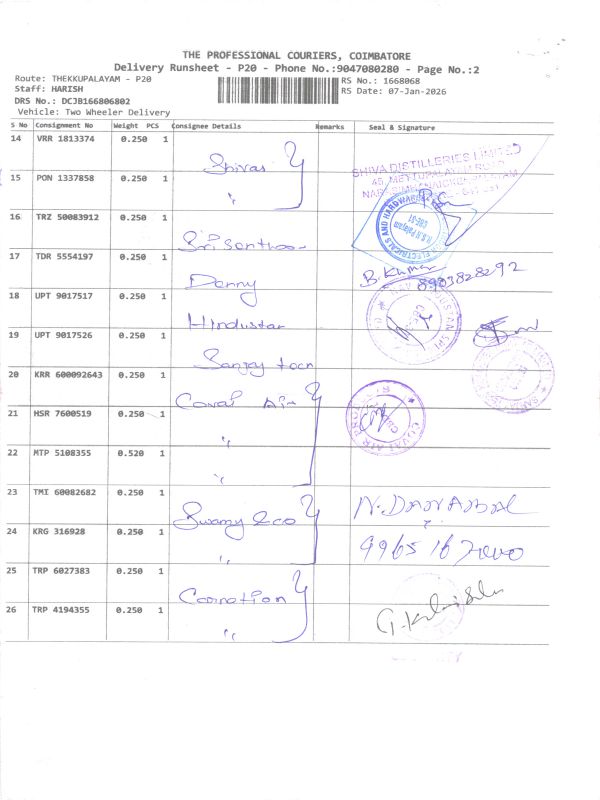 THE PROFESSIONAL COURIERS, COIMBATORE
Delivery Runsheet - P20 - Phone No.:9047080280 - Page No.:2
Route: THEKKUPALAYAM - P20
RS No.: 1668068
Staff: HARISH
RS Date: 07-Jan-2026
DRS No.: DCJB166806802
Vehicle: Two Wheeler Delivery
S No Consignment No Weight PCS Consignee Details Remarks Seal & Signature
14 VRR 1813374 0.250 1 Shivas
SHIVA DISTILLERIES LIMITED
15 PON 1337858 0.250 1 "
16 TRZ 50083912 0.250 1 Sri Santhoor
17 TDR 5554197 0.250 1 Denny B. Kumar 8903828292
18 UPT 9017517 0.250 1 Hindustan
19 UPT 9017526 0.250 1 Sanjay tech
20 KRR 600092643 0.250 1 Covai Air
COVAI AIR
21 HSR 7600519 0.250 1 "
22 MTP 5108355 0.520 1 "
23 TMI 60082682 0.250 1 Swamy & co
24 KRG 316928 0.250 1 "
25 TRP 6027383 0.250 1 Carnation
26 TRP 4194355 0.250 1 "